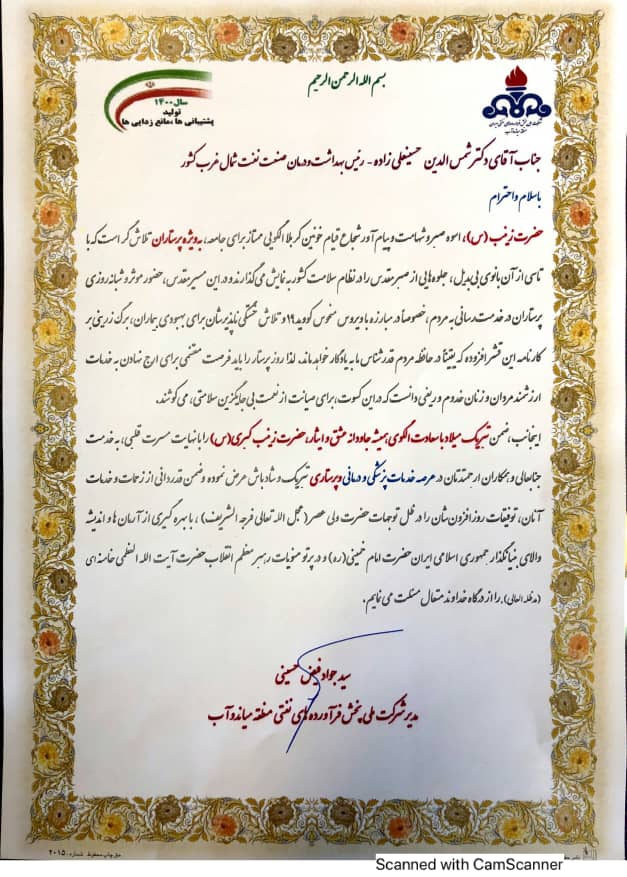 بسم الله الرحمن الرحیم
سال ۱۴۰۰
تولید
پشتیبانی ها، مانع زدایی ها
جناب آقای دکتر شمس الدین حسینعلی زاده - رئیس بهداشت و درمان صنعت نفت شمال غرب کشور
با سلام و احترام
حضرت زینب (س)، اسوه صبر و شهامت و پیام آور شجاع قیام خونین کربلا الگویی ممتاز برای جامعه، به ویژه پرستاران تلاش گر است که با
تاسی از آن بانوی بی بدیل، جلوه هایی از صبر مقدس را در نظام سلامت کشور به نمایش می گذارند و در این مسیر مقدس، حضور موثر و شبانه روزی
پرستاران در خدمت رسانی به مردم، خصوصاً در مبارزه با ویروس منحوس کووید ۱۹ و تلاش خستگی ناپذیرشان برای بهبودی بیماران، برگ زرینی بر
کارنامه این قشر افزوده که یقیناً در حافظه مردم قدرشناس ما به یادکار خواهد ماند. لذا روز پرستار را باید فرصت مغتنمی برای ارج نهادن به خدمات
ارزشمند مردان و زنان خدوم و ریفی دانست که در این کسوت، برای صیانت از نعمت بی جایگزین سلامتی، می کوشند.
اینجانب، ضمن تبریک میلاد با سعادت الگوی همیشه جاودانه عشق و ایثار، حضرت زینب کبری (س) را با نهایت مسرت قلبی، به خدمت
جنابعالی و همکاران ارجمندتان در عرصه خدمات پزشکی و درمانی و پرستاری تبریک و شادباش عرض نموده و ضمن قدردانی از زحمات و خدمات
آنان، توفیقات روز افزون شان را در ظل توجهات حضرت ولی عصر (عجل الله تعالی فرجه الشریف)، با بهره گیری از آرمان ها و اندیشه
والای بنیانگذار جمهوری اسلامی ایران حضرت امام خمینی (ره) و در پرتو منویات رهبر معظم انقلاب حضرت آیت الله العظمی خامنه ای
(مدظله العالی) را از درگاه خداوند متعال مسئلت می نمایم.
سید جواد فیض حسینی
مدیر شرکت ملی پخش فرآورده های نفتی منطقه میاندوآب
حق چاپ محفوظ شماره: ۲۰۱۵
Scanned with CamScanner